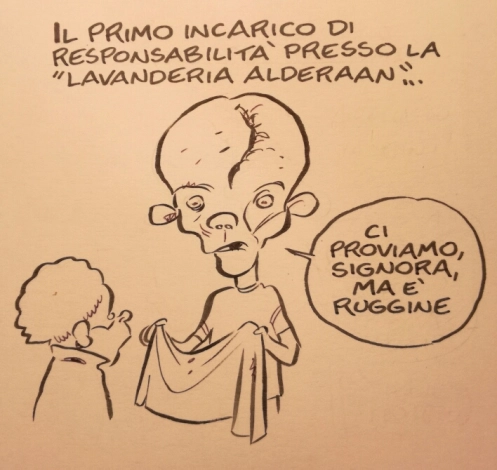 IL PRIMO INCARICO DI
RESPONSABILITÀ PRESSO LA
"LAVANDERIA ALDERAAN"...
CI
PROVIAMO,
SIGNORA,
MA È
RUGGINE